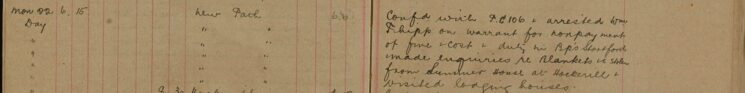 Mon 22 6. 15 New Path 6.0 Conf'd with P.C 106 & arrested Wm
Day " " Phipp on warrant for nonpayment
" " " of fine & Cost & duty in Bp's Stortford
" " " made enquiries re Blankets &c stolen
" " " from Summer House at Hockerill &
visited lodging houses